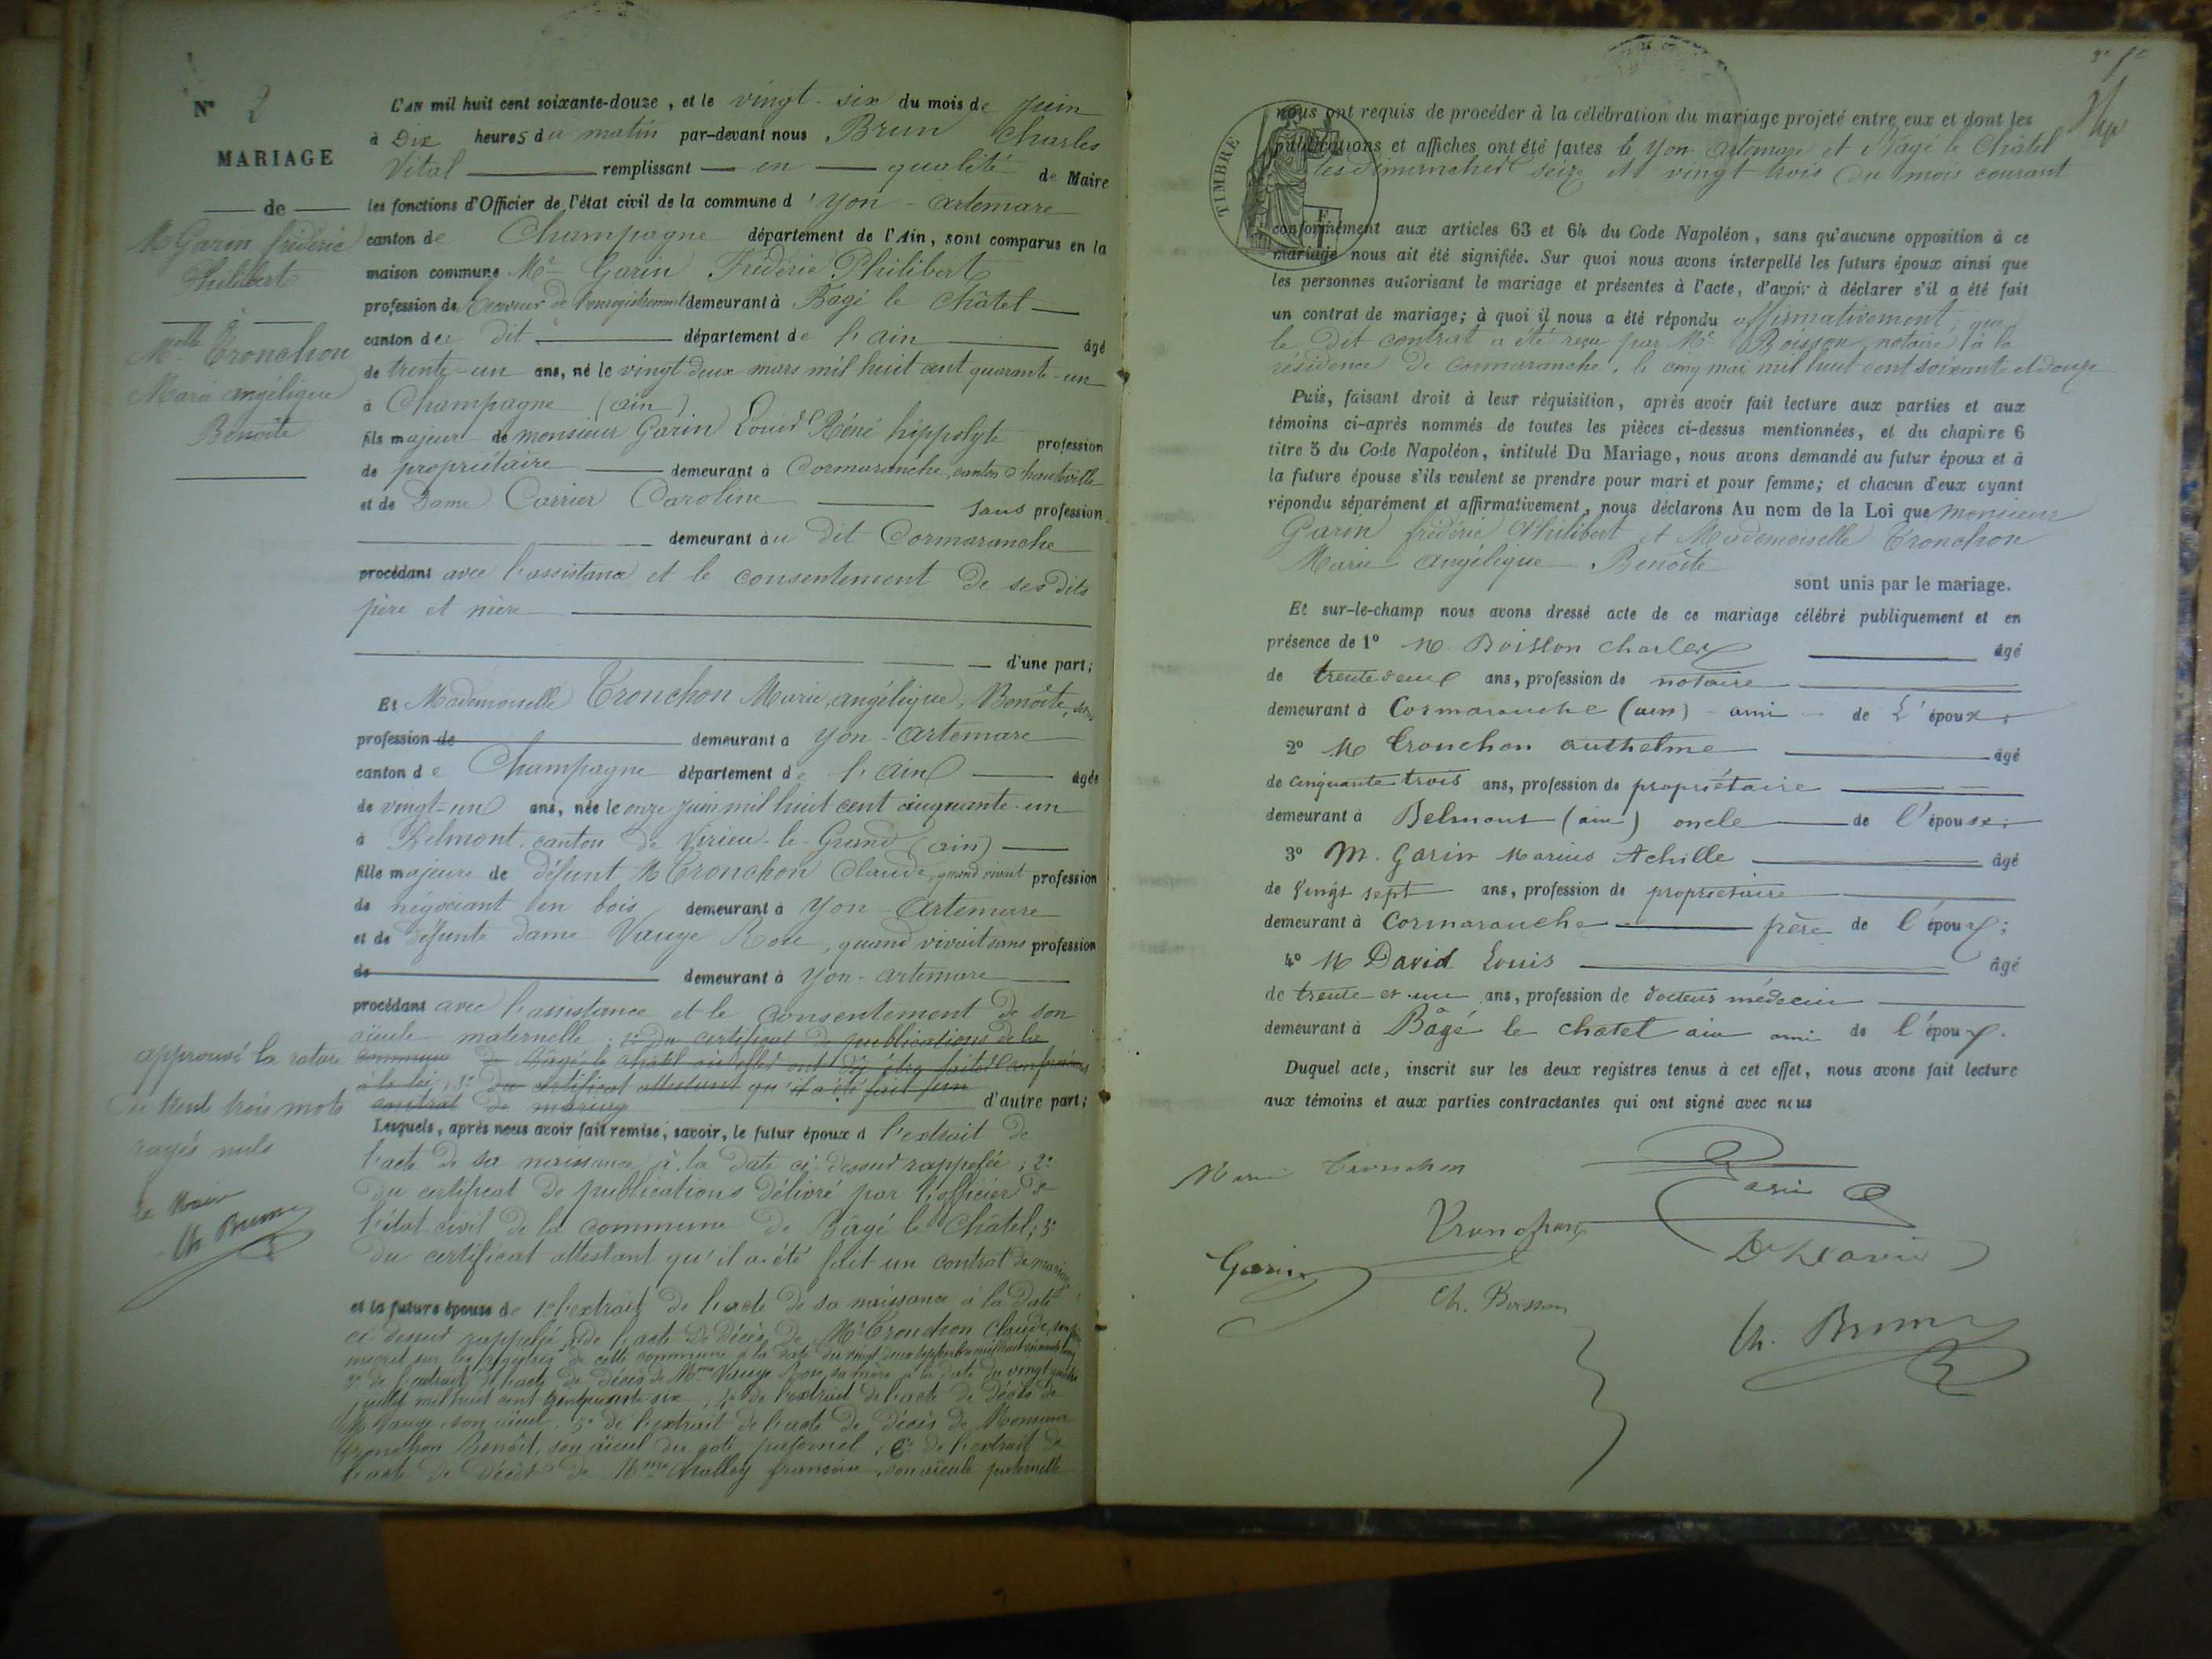 N° 2
MARIAGE
de
M. Garin frédéric
Philibert
à
Melle Tronchon
Marie angélique
Benoite
L'AN mil huit cent soixante-douze, et le vingt-six du mois de juin
à Dix heures du matin par-devant nous Brun Charles
Vital remplissant en qualité de Maire
les fonctions d'Officier de l'état civil de la commune d'yon-artemare
canton de Champagne département de l'Ain, sont comparus en la
maison commune Mr Garin Frédéric Philibert
profession de receveur de l'enregistrement demeurant à Bâgé le Châtel
canton du dit département de l'ain âgé
de trente-un ans, né le vingt deux mars mil huit cent quarante-un
à Champagne (ain)
fils majeur de monsieur Garin Louis Réné hippolyte profession
de propriétaire demeurant à Cormaranche, canton d'hauteville
et de Dame Carrier Caroline sans profession
demeurant au dit Cormaranche
procédant avec l'assistance et le consentement de ses dits
père et mère
d'une part;
Et Mademoiselle Tronchon Marie, angélique, Benoîte, sans
profession de demeurant à yon-artemare
canton de Champagne département de l'ain âgée
de vingt-un ans, née le onze juin mil huit cent cinquante-un
à Belmont, canton de Virieu-le-Grand (ain)
fille majeure de défunt M Tronchon Claude, quand vivait profession
de négociant en bois demeurant à yon-artemare
et de défunte dame Vauge Rose, quand vivait sans profession
de demeurant à yon-artemare
procédant avec l'assistance et le consentement de son
aïeule maternelle; 2° du certificat de publications de la
commune de Bâgé le Châtel où elles ont dû être faites conformément
à la loi, 3° du certificat attestant qu'il a été fait un
contrat de mariage d'autre part;
approuvé la rature
de trente trois mots
rayés nuls
Le Maire
Ch. Brun
Lesquels, après nous avoir fait remise, savoir, le futur époux d l'extrait de
l'acte de sa naissance à la date ci-dessus rappelée; 2°
du certificat de publications délivré par l'officier de
l'état civil de la commune de Bâgé le Châtel; 3°
du certificat attestant qu'il a été fait un contrat de mariage
et la future épouse de 1° l'extrait de l'acte de sa naissance à la date
ci-dessus rappelée, 2° de l'acte de décès de Mr Tronchon Claude, son père
inscrit sur les registres de cette commune à la date du vingt deux septembre mil huit cent
3° de l'extrait de l'acte de décès de Mme Vauge Rose, sa mère à la date du vingt quatre
juillet mil huit cent cinquante six, 4° de l'extrait de l'acte de décès de
Mr Vauge, son aïeul, 5° de l'extrait de l'acte de décès de Monsieur
Tronchon Benoît, son aïeul du coté paternel; 6° de l'extrait de
l'acte de décès de Mme françoise, son aïeule paternelle
TIMBRE
nous ont requis de procéder à la célébration du mariage projeté entre eux et dont les
publications et affiches ont été faites à yon artemare et Bâgé le Châtel
les dimanches seize et vingt trois du mois courant
conformément aux articles 63 et 64 du Code Napoléon, sans qu'aucune opposition à ce
mariage nous ait été signifiée. Sur quoi nous avons interpellé les futurs époux ainsi que
les personnes autorisant le mariage et présentes à l'acte, d'avoir à déclarer s'il a été fait
un contrat de mariage; à quoi il nous a été répondu affirmativement, que
le dit contrat a été reçu par Me Boisson, notaire à la
résidence de Cormaranche, le cinq mai mil huit cent soixante et douze
Puis, faisant droit à leur réquisition, après avoir fait lecture aux parties et aux
témoins ci-après nommés de toutes les pièces ci-dessus mentionnées, et du chapitre 6
titre 5 du Code Napoléon, intitulé Du Mariage, nous avons demandé au futur époux et à
la future épouse s'ils veulent se prendre pour mari et pour femme; et chacun d'eux ayant
répondu séparément et affirmativement, nous déclarons Au nom de la Loi que monsieur
Garin frédéric Philibert et Mademoiselle Tronchon
Marie angélique Benoîte
sont unis par le mariage.
Et sur-le-champ nous avons dressé acte de ce mariage célébré publiquement et en
présence de 1° M. Boisson Charles âgé
de trente deux ans, profession de notaire
demeurant à Cormaranche (ain) ami de l'époux;
2° M Tronchon anthelme âgé
de cinquante trois ans, profession de propriétaire
demeurant à Belmont (ain) oncle de l'épouse;
3° M. Garin Marius Achille âgé
de vingt sept ans, profession de propriétaire
demeurant à Cormaranche frère de l'époux;
4° M David Louis âgé
de trente et un ans, profession de docteur médecin
demeurant à Bâgé le chatel ain ami de l'époux.
Duquel acte, inscrit sur les deux registres tenus à cet effet, nous avons fait lecture
aux témoins et aux parties contractantes qui ont signé avec nous
Marie Tronchon
Garin
Tronchon
Dr David
Garin
Ch. Boisson
Ch. Brun